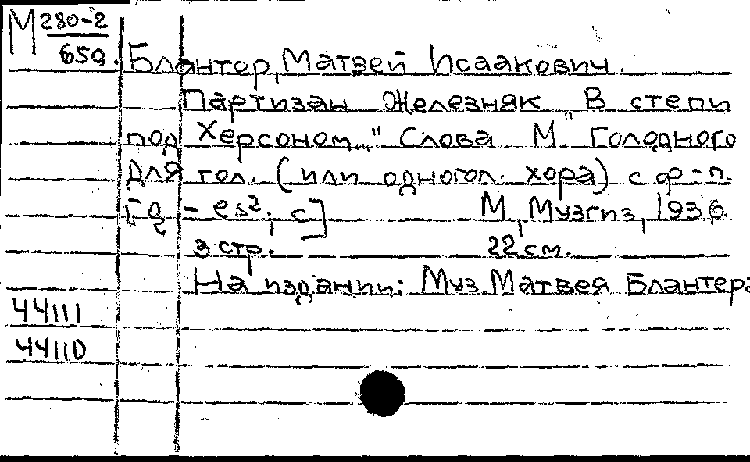 М 280-2
650.
Блантер, Матвей Исаакович.
Партизан Железняк „В степи
под Херсоном..." Слова М. Голодного
Для гол. (или одногол. хора) с ф-п.
es², c] М, Музгиз, 1936
3 стр. 22 см.
На издании: Муз. Матвея Блантера
44111
44110